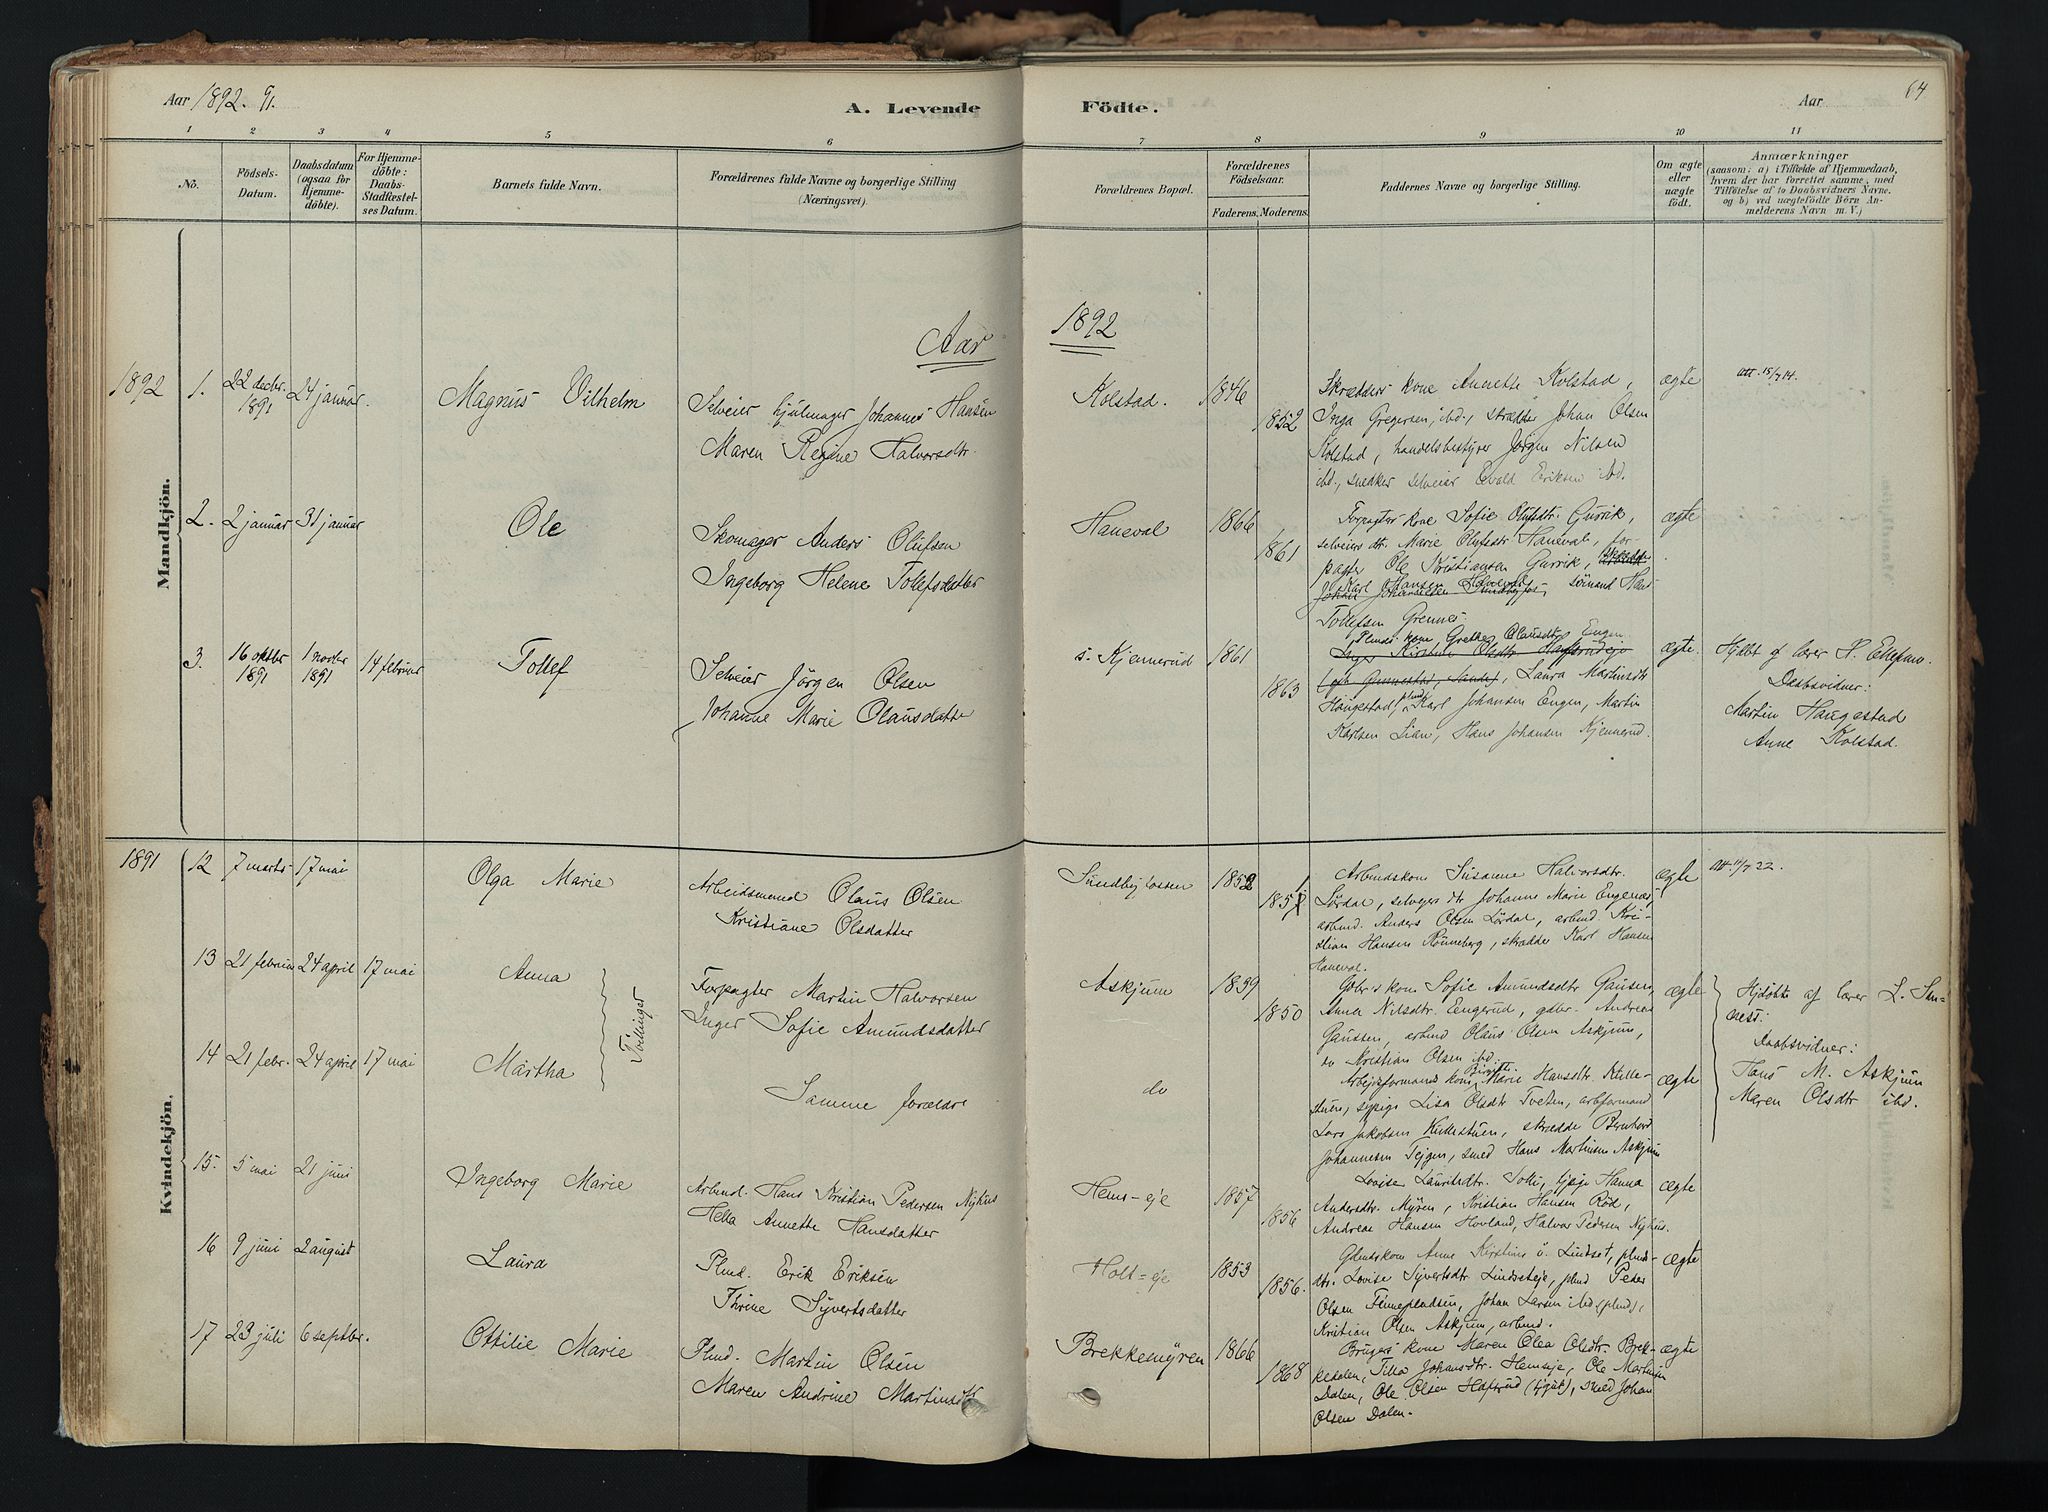 Aar 1892. 91.
A. Levende
Födte.
Aar
64
1
2
3
4
5
6
7
8
9
10
11
No.
Födsels-
Datum.
Daabsdatum
(ogsaa for
Hjemme-
döbte).
For Hjemme-
döbte:
Daabs-
Stadfæstel-
ses Datum.
Barnets fulde Navn.
Forældrenes fulde Navne og borgerlige Stilling
(Næringsvei).
Forældrenes Bopæl.
Forældrenes
Födselsaar.
Faderens.
Moderens.
Faddernes Navne og borgerlige Stilling.
Om ægte
eller
uægte
födt.
Anmærkninger
(saasom: a) i Tilfælde af Hjemmedaab,
hvem der har forrettet samme, med
Tilföielse af to Daabsvidners Navne.
og b) ved uægtefödte Börn An-
melderens Navn m. V.)
Aar 1892
Mandkjön.
1892
1. 22 decbr. 1891
24 januar.
Magnus Vilhelm
Selveier hjulmager Johannes Hansen
Maren Regine Halvorsdtr.
Kolstad.
1846
1852
Skrædders kone Annette Kolstad,
Inga Gregersen, ibd., skrædder Johan Olsen
Kolstad, handelsbestyrer Jørgen Nilsen
ibd., snedker selveier Evald Eriksen ibd.
ægte
Att. 15/7 14.
2. 2 januar
31 januar
Ole
Skomager Anders Olufsen
Ingeborg Helene Tollefsdatter
Haneval
1866
1861
Forpagter kone Sofie Olufsdtr. Gurrik,
selveiers dtr. Marie Olufsdtr Haneval, for-
pagter Ole Kristiansen Gurrik, skrædder
Karl Hansen Haneval
Johan Johannesen Sundbyfos, sömand Hans
Tollefsen Grennes.
ægte
3. 16 oktbr 1891
1 novbr 1891
14 februar
Tollef
Selveier Jörgen Olsen
Johanne Marie Olausdatter
s. Kjennerud
1861
1863
Plmds. kone Grethe Olausdtr Engen
Laura Martinsdtr
Haugestad, plmd Karl Johansen Engen, Martin
Karlsen Lian, Hans Johansen Kjennerud.
ægte.
Hjdbt af lærer H. Ellefsen.
Daabsvidner:
Martin Haugestad
Anne Kolstad.
Kvindekjön.
1891
12
7 marts
17 mai
Olga Marie
Arbeidsmand Olaus Olsen
Kristiane Olsdatter
Sundbyfossen
1852
1851
Arbmdskone Susanne Halvorsdtr.
Lördal, selveiers dtr Johanne Marie Engenæs,
arbmd. Anders Olsen Lördal, arbmd. Kri-
stian Hansen Rönneberg, skrædder Karl Hansen
Haneval.
ægte
Att 11/7 22.
13
21 februar
24 april
17 mai
Anna
Tvillinger
Forpagter Martin Halvorsen
Inger Sofie Amundsdatter
Askjum
1839
1850
Gbr.s kone Sofie Amundsdtr Gausen,
Anna Nilsdtr. Engerud, gdbr. Andreas
Gaussen, arbmd Olaus Olsen Askjum,
do Kristian Olsen ibd.
ægte
Hjdöbte af lærer L. San-
nest:
Daabsvidner:
Hans M. Askjum
Maren Olsdtr ibd.
14
21 febr.
24 april
17 mai
Martha
Samme forældre
do
Arbeidsformands kone Birgitte Marie Hansdtr. Kulle-
stuen, sypige Lisa Olsdtr Tveten, arbformand
Lars Jakobsen Kullestuen, skrædder Bernhard
Johannesen Teigen, smed Hans Martinsen Askjum
ægte
15.
5 mai
21 juni
Ingeborg Marie
Arbmd. Hans Kristian Pedersen Nyhus
Hella Annette Hansdatter
Hems-eje
1857
1856
Lovise Lauritsdtr. Tofti, tjpige Hanna
Andersdtr. Myren, Kristian Hansen Röd,
Andreas Hansen Hovland, Halvor Pedersen Nyhus.
ægte
16
9 juni
2 august
Laura
Plmd. Erik Eriksen
Thrine Syvertsdatter
Holt-eje
1853
1856.
Gdmdskone Anne Kirstine ö. Lindset, plmds-
dtr. Lovise Syvertsdtr Lindseteje, plmd Peder
Olsen Finnepladsen, Johan Larsen ibd (plmds),
Kristian Olsen Askjum, arbmd.
ægte
17
23 juli
6 septbr.
Ottilie Marie
Plmd. Martin Olsen
Maren Andrine Martinsdtr
Brekkemyren
1866
1868
Brugers kone Maren Olea Olsdtr. Brek-
kedalen, Tilla Johansdtr. Hemseje, Ole Martinsen
Dalen, Ole Olsen Haftrud (tjgut), smed Johan
Olsen Dalen.
ægte